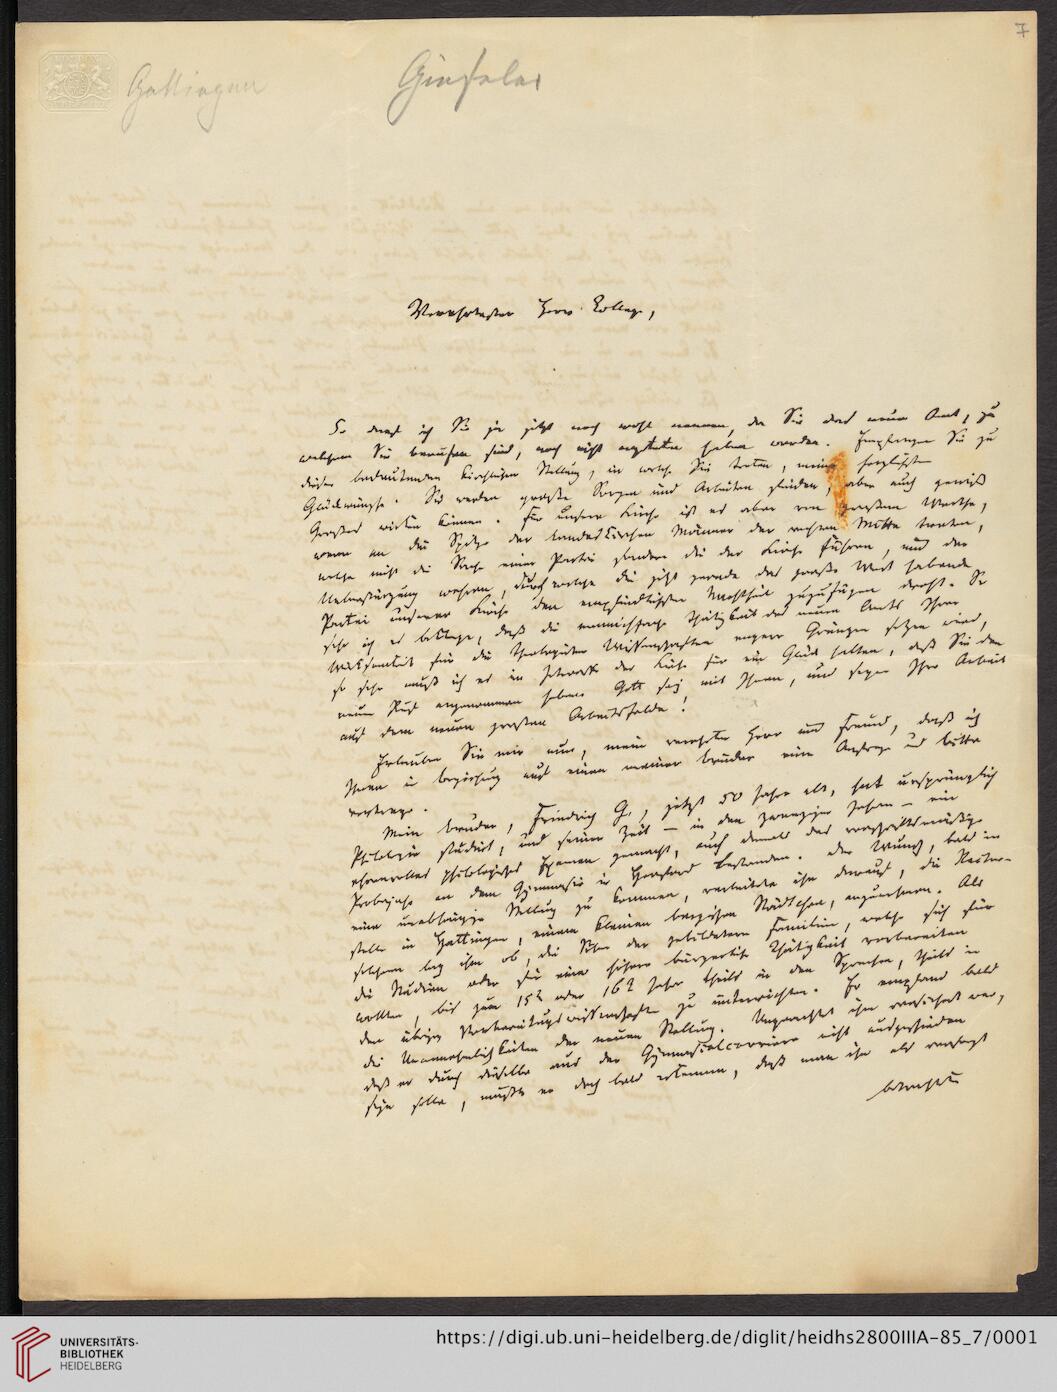 7
Göttingen Gieseler
Verehrtester Herr College,
So darf ich Sie ja jetzt noch wohl nennen, da Sie das neue Amt, zu
welchem Sie berufen sind, noch nicht angetreten haben werden. Empfangen Sie zu
dieser bedeutenden kirchlichen Stellung, in welche Sie treten, meine herzlichsten
Glückwünsche. Sie werden große Sorgen und Arbeiten finden, aber auch gewiß
Großes wirken können. Für unsere Kirche ist es aber von großem Werthe,
wenn an die Spitze der Landeskirchen Männer der rechten Mitte treten,
welche nicht die Sache einer Partei sondern die der Kirche führen, und der
Ueberstürzung wehren, durch welche die jetzt gerade das große Wort habende
Partei unserer Kirche den empfindlichsten Nachtheil zuzufügen droht. So
sehr ich es beklage, daß die mannichfache Thätigkeit des neuen Amts Ihrer
Wirksamkeit für die theologischen Wissenschaften engere Gränzen setzen wird,
so sehr muß ich es im Interesse der Kirche für ein Glück halten, daß Sie den
neuen Ruf angenommen haben. Gott sei mit Ihnen, und segne Ihre Arbeit
auf dem neuen großen Arbeitsfelde!
Erlauben Sie mir nun, mein verehrter Herr und Freund, daß ich
Ihnen in Beziehung auf einen meiner Brüder eine Anfrage und Bitte
vortrage.
Mein Bruder, Friedrich G., jetzt 50 Jahre alt, hat ursprünglich
Philologie studirt, und seiner Zeit – in den zwanziger Jahren – ein
ehrenvolles philologisches Examen gemacht, auch damals das vorschriftsmäßige
Probejahr an dem Gymnasio in Herford bestanden. Der Wunsch, bald in
eine unabhängige Stellung zu kommen, verleitete ihn darauf, die Rector-
stelle in Hattingen, einem kleinen bergischen Städtchen, anzunehmen. Als
solchem lag ihm ob, die Söhne der gebildeteren Familien, welche sich für
die Studien oder für eine höhere bürgerliche Thätigkeit vorbereiten
wollten, bis zum 15t oder 16t Jahre theils in den Sprachen, theils in
den übrigen Vorbereitungswissenschaften zu unterrichten. Er empfand bald
die Unannehmlichkeiten der neuen Stellung. Ungeachtet ihm versichert war,
daß er durch dieselbe aus der Gymnasialcarriere nicht ausgeschieden
sein solle, mußte er doch bald erkennen, daß man ihn als versorgt
betrachtete
UNIVERSITÄTS-
BIBLIOTHEK
HEIDELBERG
https://digi.ub.uni-heidelberg.de/diglit/heidhs2800IIIA-85_7/0001